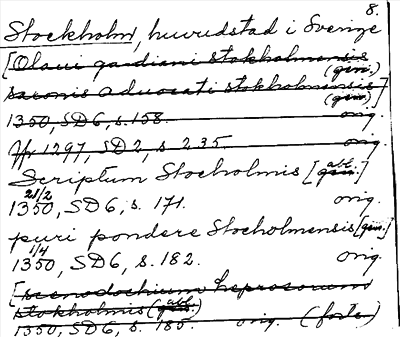 8.
Stockholm, huvudstad i Sverige
[Olaui gardiani stokholmensis
(gen.)
saconis aduocati stokholmensis
(gen.)]
1350, SD6, s. 158. orig.
Jfr 1297, SD2, s. 235. orig.
Scriptum Stocholmis [gen. abl.]
1350 21/2, SD6, s. 171. orig.
puri pondere Stocholmensis [gen.]
1350 1/4, SD6, s. 182. orig.
[xenodochium leprosorum
stokholmis (gen. abl.)
1350, SD6, s. 185. orig. (forts)